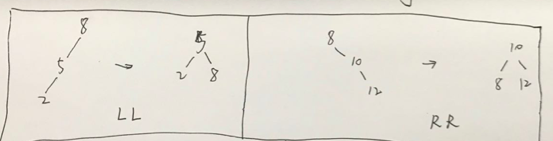 8
5
2
→
5
2 8
LL
8
10
12
→
10
8 12
RR